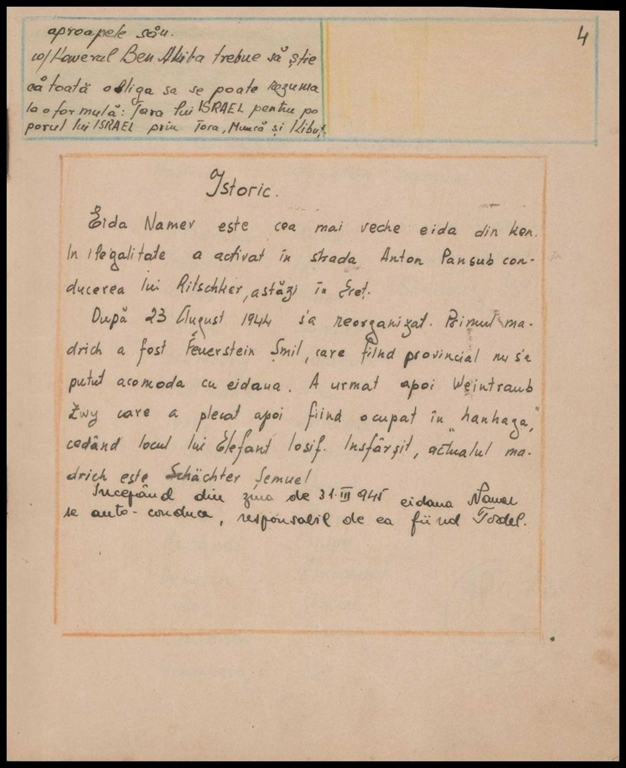 4
aproapele său.
10/ Haverul Ben Akiba trebue să știe
că toată obliga sa se poate rezuma
la o formulă: Țara lui ISRAEL pentru po
porul lui ISRAEL prin Tora, Muncă și Kibuț.
Istoric.
Eida Namer este cea mai veche eida din ken.
In ilegalitate a activat în strada Anton Pan sub con-
ducerea lui Ritschker, astăzi în Ereț.
După 23 August 1944 s'a reorganizat. Primul ma-
drich a fost Feuerstein Șmil, care fiind provincial nu s'a
putut acomoda cu eidaua. A urmat apoi Weintraub
Zwy care a plecat apoi fiind ocupat în "hanhaga,"
cedând locul lui Elefant Iosif. Insfârșit, actualul ma-
drich este Schächter Șemuel
Începând din ziua de 31 III 945 eidaua Namer
se auto-conduce, responsabil de ea fiind Fredel.